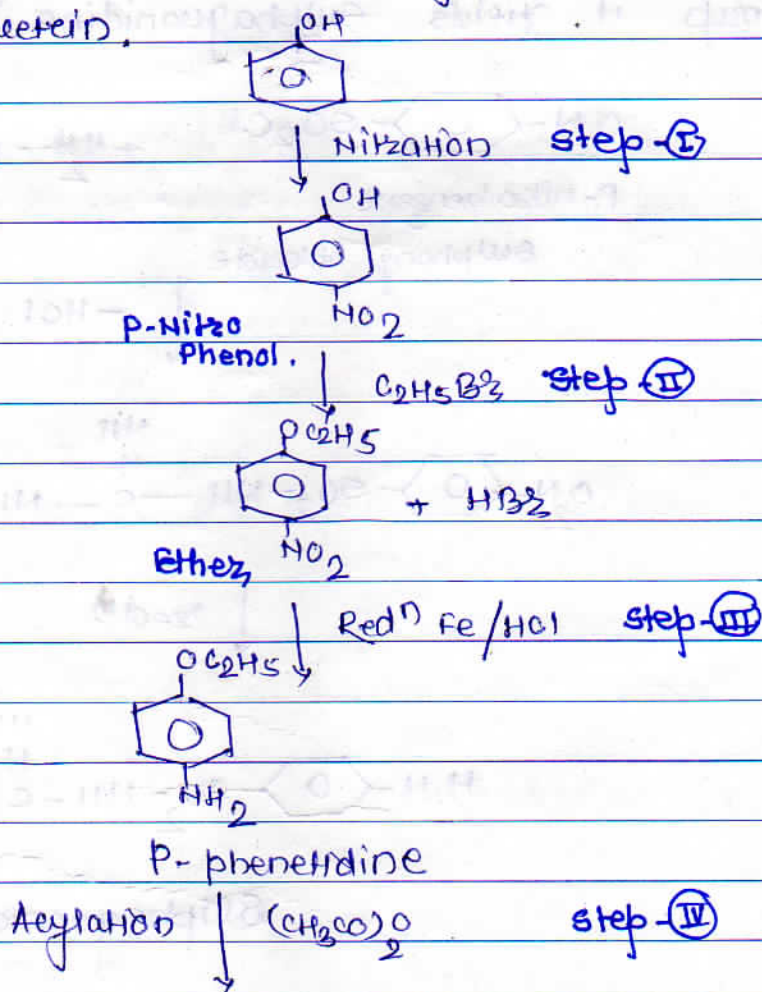 OH
Nitration step-I
OH
NO2
P-Nitro
Phenol.
C2H5Br step-II
OC2H5
+ HBr
NO2
Ether
Redn Fe/HCl step-III
OC2H5
NH2
P-phenetidine
Acylation (CH3CO)2O step-IV